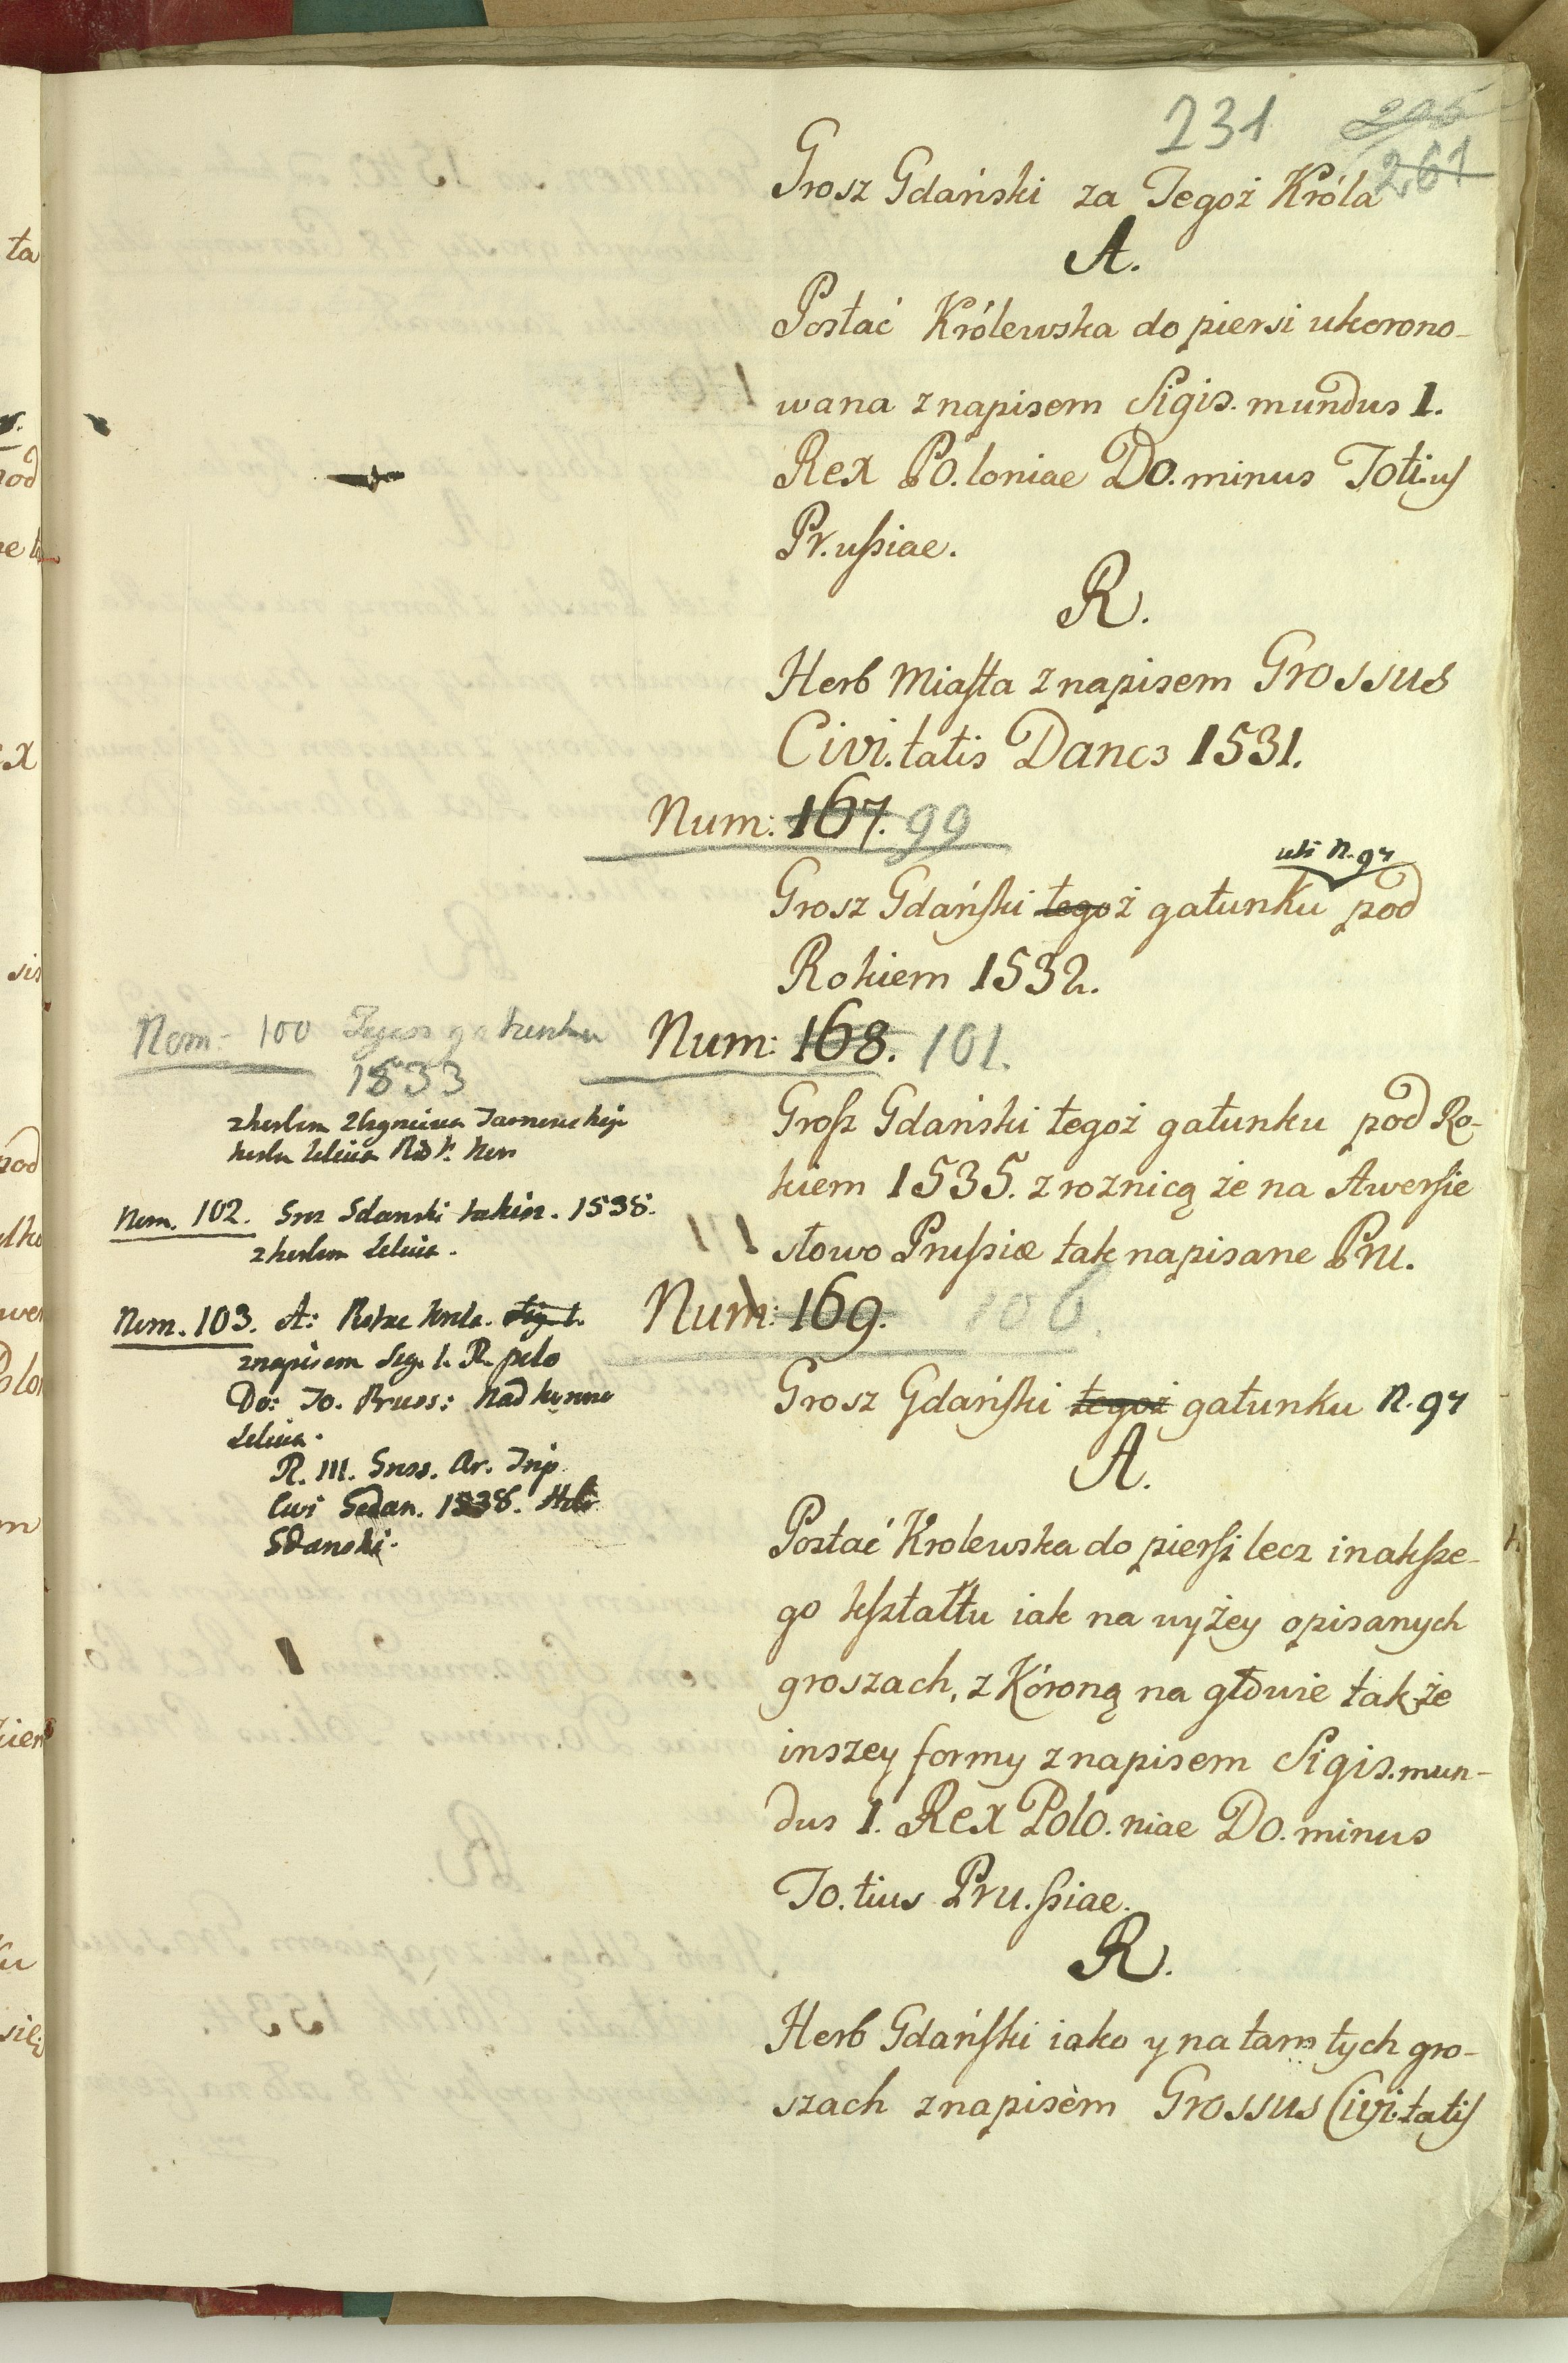 231
261
Grosz Gdański za Tegoż Króla
A.
Postać Królewska do piersi ukorono-
wana z napisem Sigis.mundus 1.
Rex PO.loniae DO.minus Toti.us
Pr.ußiae.
R.
Herb Miasta z napisem Grossus
Civi.tatis Dancz 1531.
Num: 167. 99
uti N. 97
Grosz Gdański tegoż gatunku pod
Rokiem 1532.
Num: 168. 101.
Grosz Gdański tegoż gatunku pod Ro-
kiem 1535. z roznicą że na Awersie
słowo Prußiæ tak napisane Pru.
Num: 169. 106.
Grosz Gdański tegoż gatunku N. 97
A.
Postać Krolewska do piersi lecz inaksze-
go kształtu iak na wyżey opisanych
groszach, z Kóroną na głowie także
inszey formy z napisem Sigis.mun-
dus 1. Rex Polo.niae DO.minus
To.tius Pru.ßiae.
R.
Herb Gdański iako y na tamtych gro-
szach z napisem Grossus Civi.tatis
Nom: 100 gatunku
1533
z herbem
Nom. 102. Gdanski 1538.
z herbem Leliwa.
Nom. 103. A:
z napisem Sig. 1. R. polo
Do: To. Pruss: Nad
Leliwa.
R. III. Gross. Ar. Trip
Civi Gedan. 1538.
Gdanski.